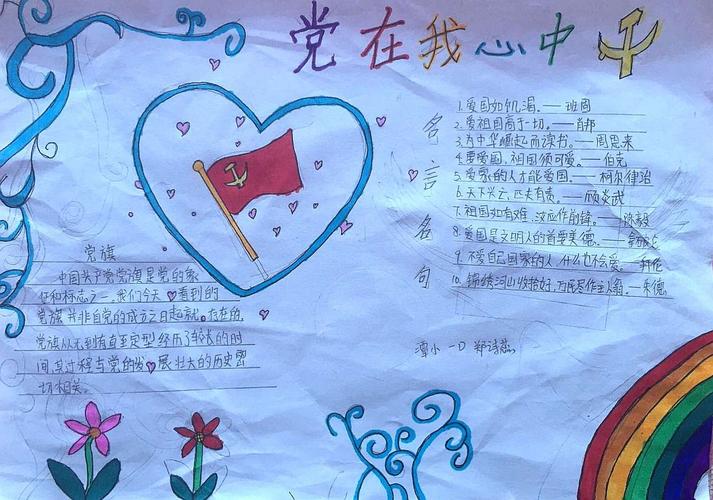 党在我心中
党旗
中国共产党党旗是党的象
征和标志之一。我们今天看到的
党旗并非自党的成立之日起就存在的,
党旗从无到有直至定型经历了较长的时
间其过程与党的发展壮大的历史密
切相关。
名言名句
1.爱国如饥渴。——班固
2.爱祖国高于一切。——肖邦
3.为中华崛起而读书。——周恩来
4.要爱国,祖国须可爱。——伯克
5.爱家的人才能爱国。——柯尔律治
6.天下兴亡,匹夫有责。——顾炎武
7.祖国如有难,汝应作前锋。——陈毅
8.爱国是文明人的首要美德。——拿破仑
9.不爱自己国家的人,什么也不会爱。——拜伦
10.锦绣河山收拾好,万民尽作主人翁。——朱德
潭小一D